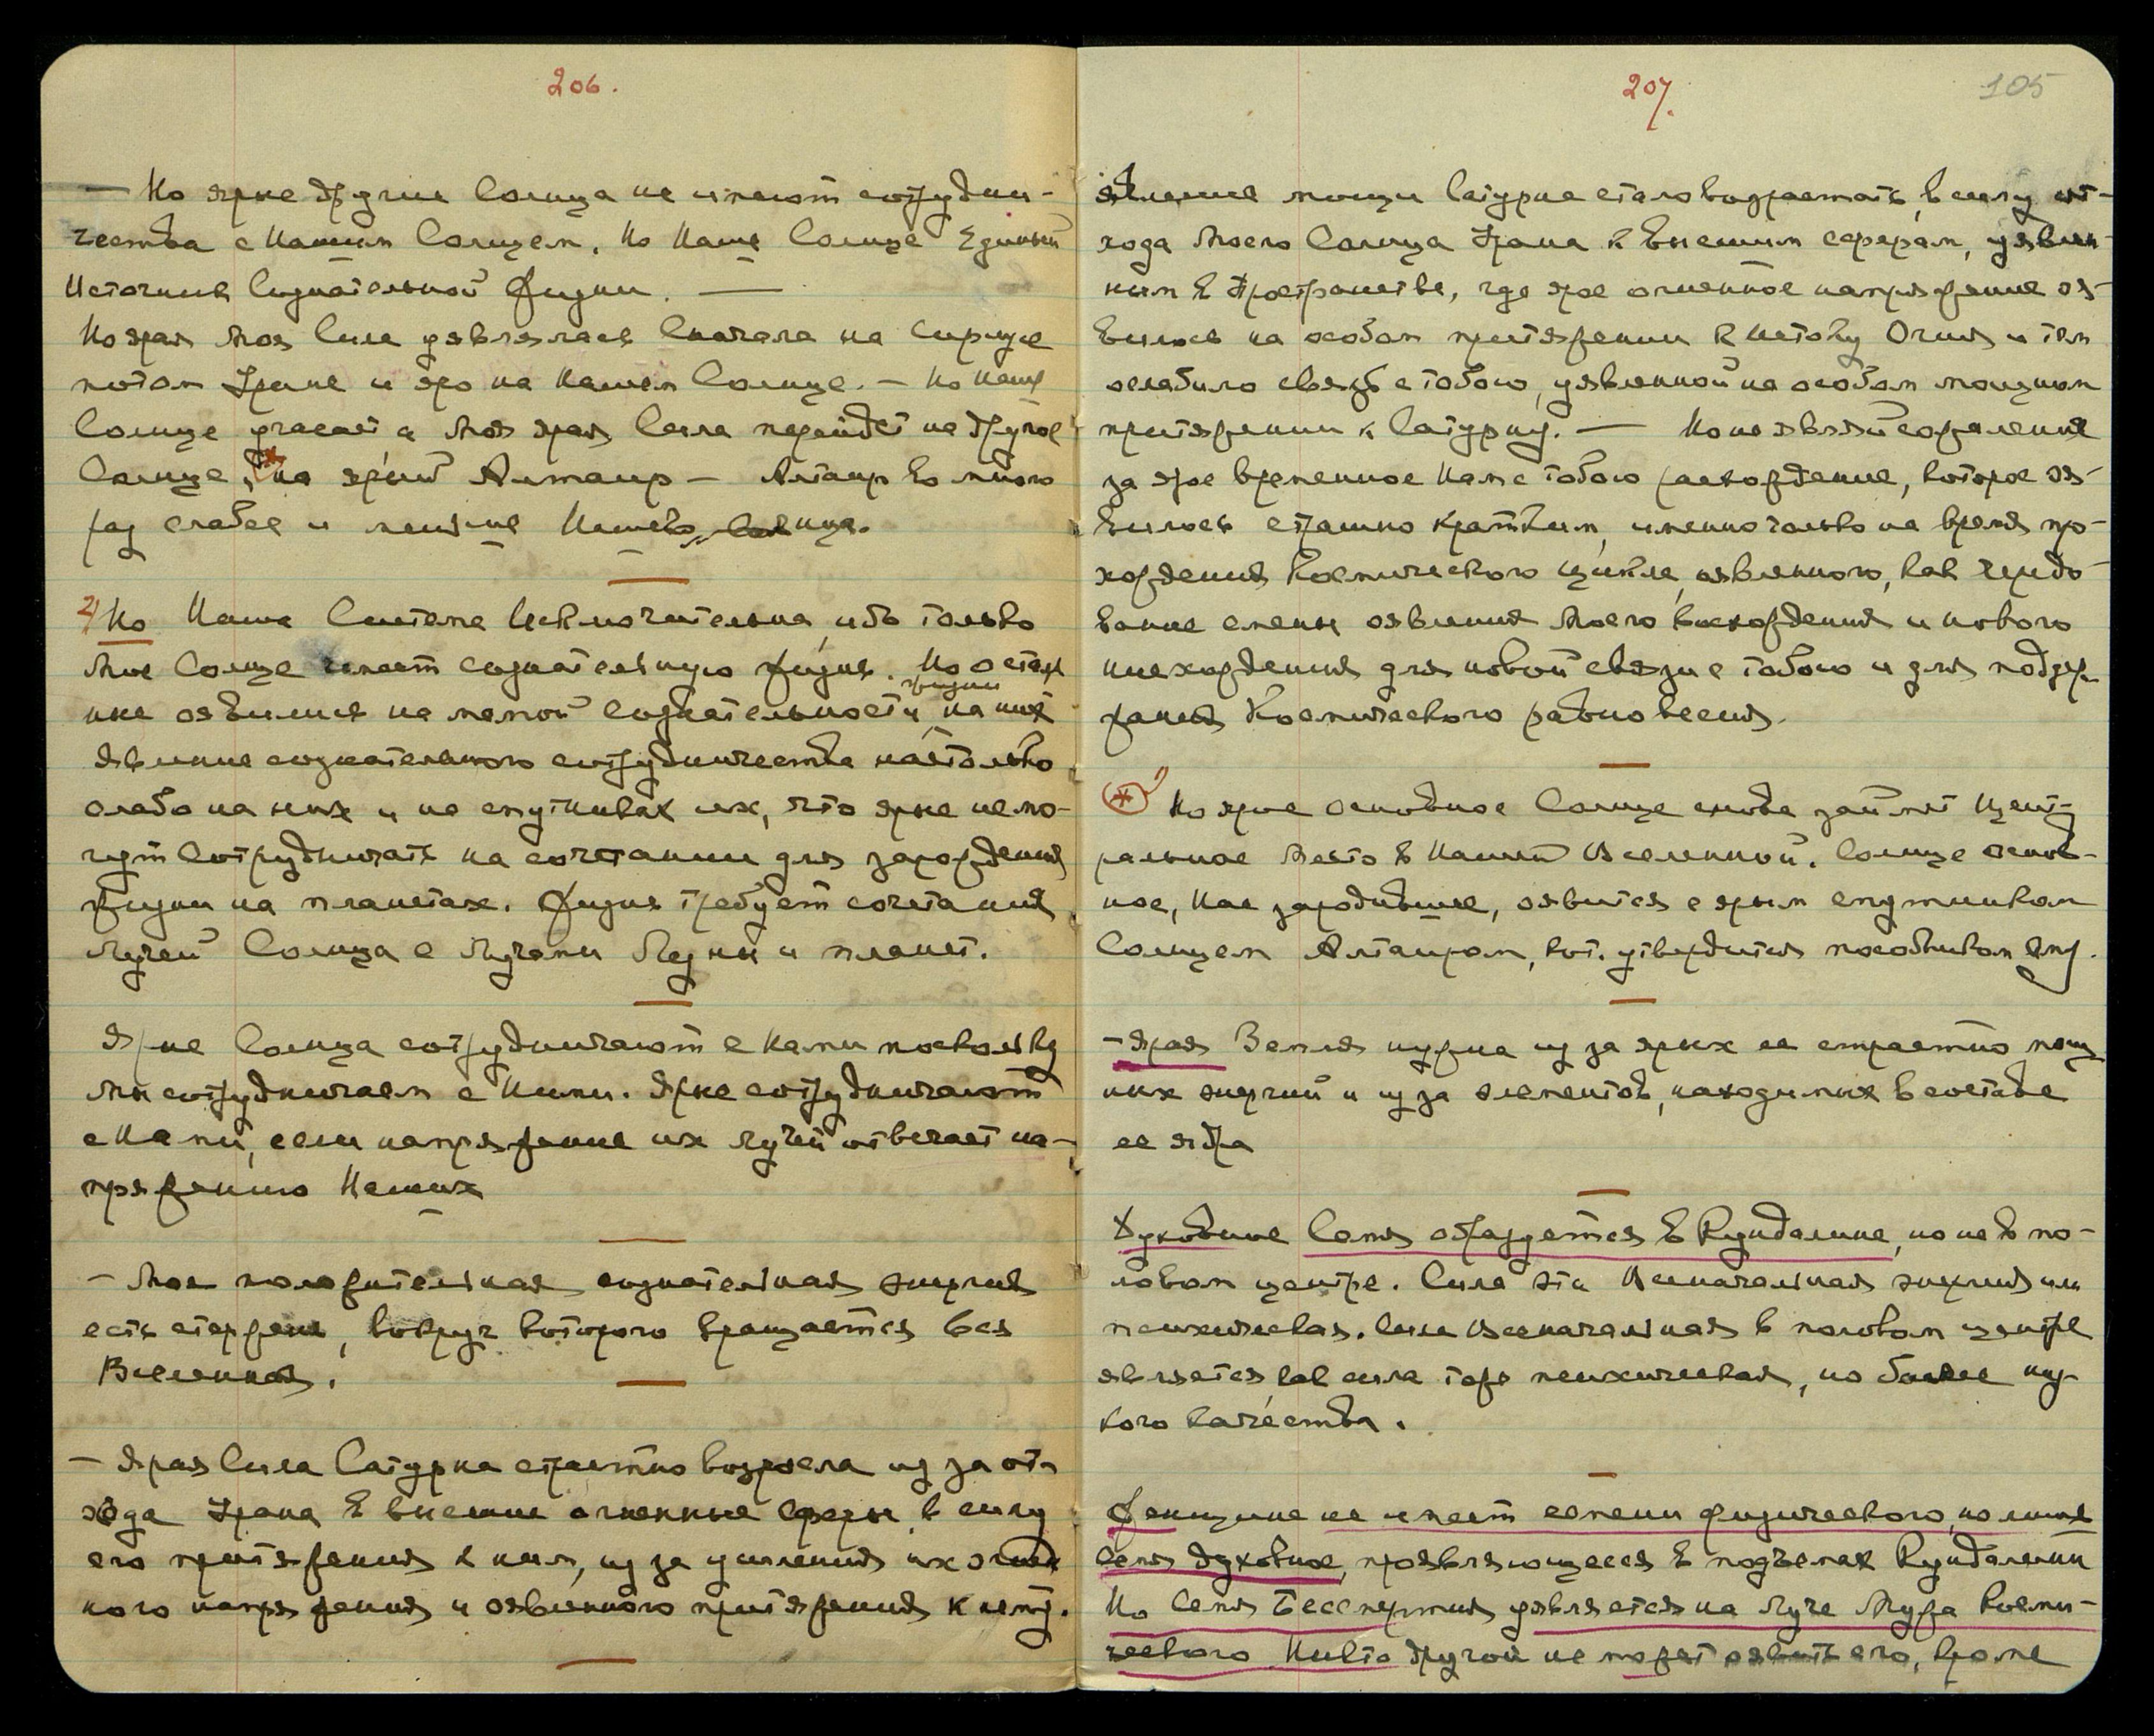 206.
— Но ярые другие Солнца не имеют сотрудни-
чества с Нашим Солнцем. Но Наше Солнце Единый
Источник Сознательной жизни. —
Но ярая Моя Сила уявлялась Сначала на Сириусе
потом Уране и яро на Нашем Солнце. — Но Наше
Солнце угасает и Моя ярая Сила перейдет на другое
Солнце, * на ярый Альтаир — Алтаир во много
раз слабее и меньше Нашего Солнца.
2) Но Наша Система Исключительна, ибо только
Мое Солнце имеет сознательную жизнь. Но осталь
ные оявились на малой сознательности жизни, на них
явление сознательного сотрудничества настолько
слабо на них и на спутниках их, что ярые не мо-
гут сотрудничать на сочетании для зарождения
жизни на планетах. Жизнь требует сочетания
лучей Солнца с лучами Луны и планет.
Ярые Солнца сотрудничают с нами поскольку
Мы сотрудничаем с Ними. Ярые сотрудничают
с Нами, если напряжение их лучей отвечает на-
пряжению Наших
— Моя положительная сознательная энергия
есть стержень, вокруг которого вращается вся
Вселенная.
— Ярая Сила Сатурна страстно возросла из за от-
хода Урана в внешние огненные сферы, в силу
его притяжения к ним, из за усиления их огнен
ного напряжения и оявленного притяжения к нему.
207.
105
явление мощи Сатурна стало возрастать, в силу от-
хода Моего Солнца Урана к внешним сферам, уявлен-
ным в Пространстве, где ярое огненное напряжение оя-
вилось на особом притяжении к Истоку Огня и тем
ослабило связь с тобою, уявленной на особом мощном
притяжении к Сатурну. — Но не являй сожаления
за ярое временное Нам с тобою расхождение, которое оя-
вилось страшно кратким, именно только на время про-
хождения Космического цикла, оявленного, как чередо-
вание смены оявления Моего восхождения и нового
нисхождения для новой связи с тобою и для поддер-
жания Космического равновесия.
* Но ярое основное Солнце снова займет Цент-
ральное Место в Нашей Вселенной. Солнце основ-
ное, Нас зародившее, оявится с ярым спутником
Солнцем Алтаиром, кот. утвердится пособником ему.
— Ярая Земля нужна из за ярых ее страстно мощ
ных энергий и из за элементов, находимых в составе
ее ядра
Духовное Семя образуется в Кундалине, но не в по-
ловом центре. Сила эта Всеначальная энергия или
психическая. Сила Всеначальная в половом центре
является, как сила тоже психическая, но более низ-
кого качества.
Женщина не имеет семени физического, но лишь
семя духовное, проявляющееся в подъемах Кундалини
Но Семя Бессмертия уявляется на Луче Мужа косми-
ческого Никто другой не может оявить его, кроме